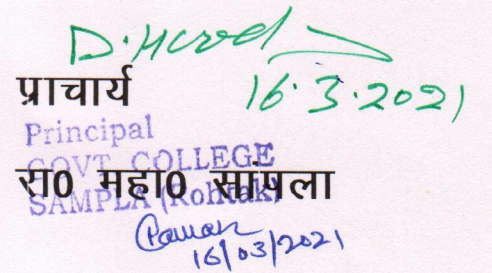 16.3.2021
प्राचार्य
Principal
GOVT. COLLEGE
रा0 महा0 सांपला
SAMPLA (Rohtak)
16/03/2021